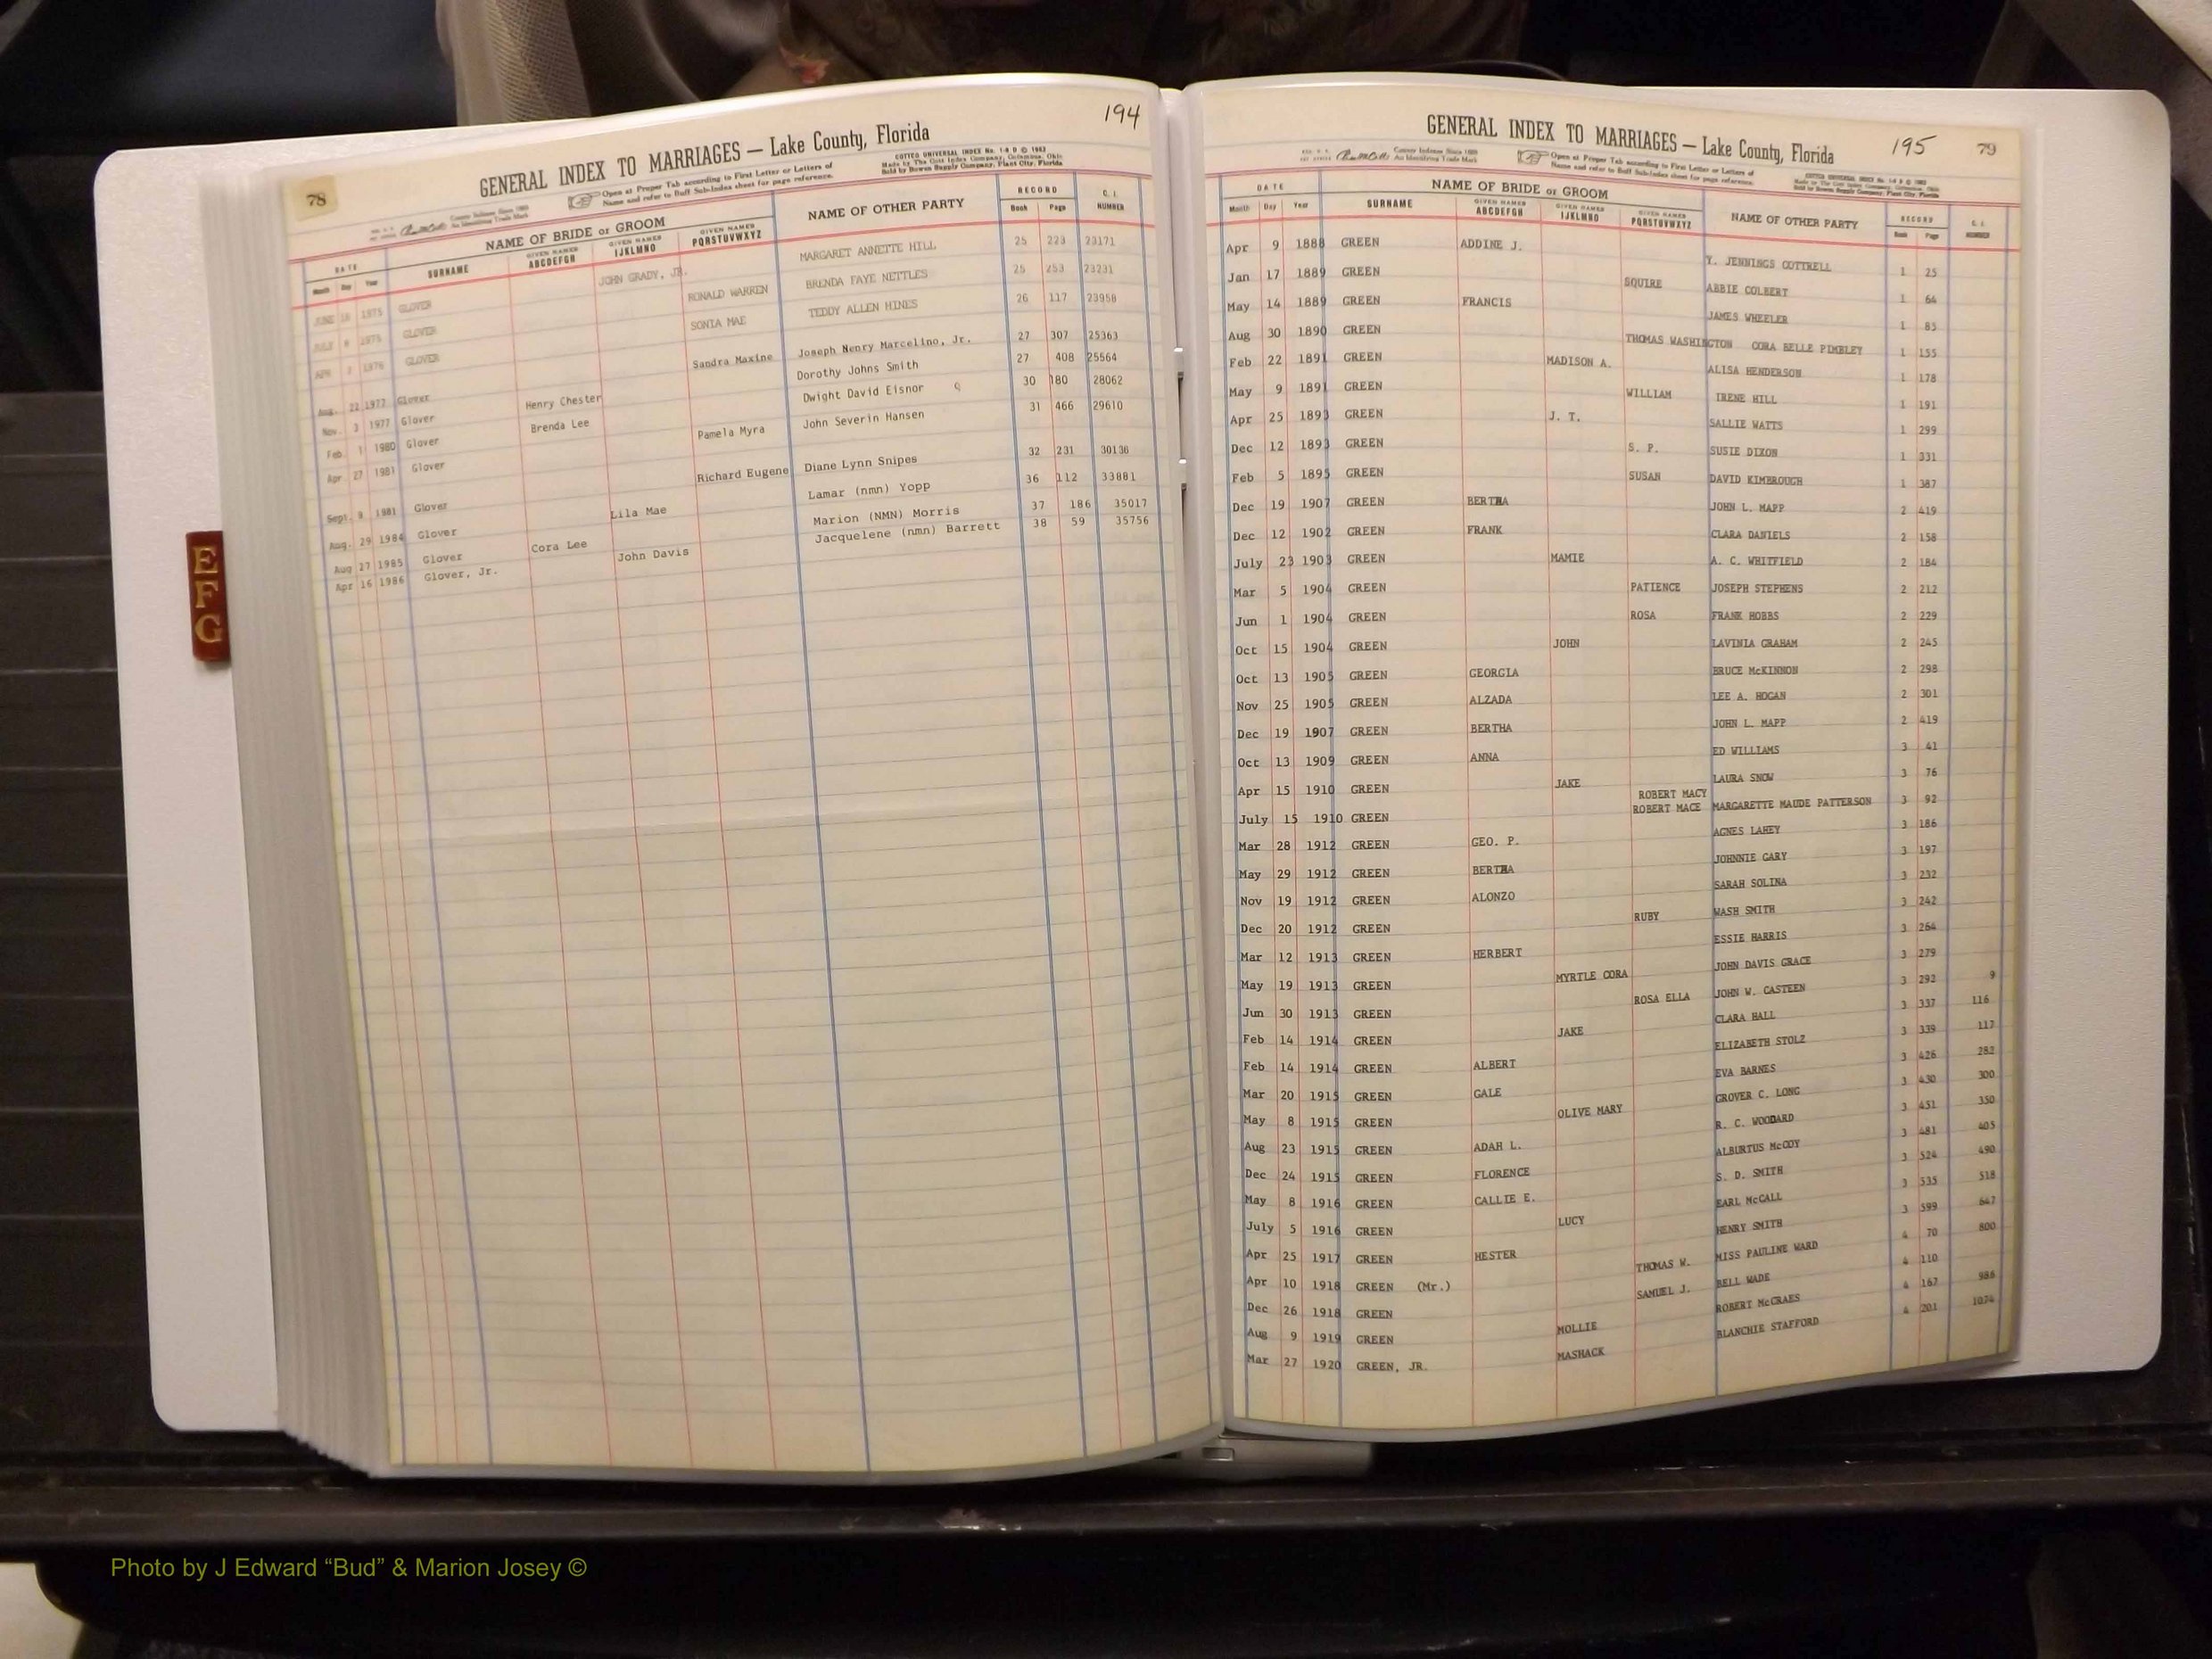 194
78
GENERAL INDEX TO MARRIAGES — Lake County, Florida
COTTCO UNIVERSAL INDEX No. 1-8 D © 1962
Made by The Cott Index Company, Columbus, Ohio
Sold by Bowen Supply Company, Plant City, Florida
Open at Proper Tab according to First Letter or Letters of
Name and refer to Buff Sub-Index sheet for page reference.
DATE NAME OF BRIDE or GROOM NAME OF OTHER PARTY RECORD C. I.
Month Day Year SURNAME GIVEN NAMES ABCDEFGH GIVEN NAMES IJKLMNO GIVEN NAMES PQRSTUVWXYZ Book Page NUMBER
JUNE 1975 GLOVER JOHN GRADY, JR. MARGARET ANNETTE HILL 25 223 23171
JULY 1975 GLOVER RONALD WARREN BRENDA FAYE NETTLES 25 253 23231
APR 2 1976 GLOVER SONIA MAE TEDDY ALLEN HINES 26 117 23958
Aug. 22 1977 Glover Sandra Maxine Joseph Henry Marcelino, Jr. 27 307 25363
Nov. 3 1977 Glover Henry Chester Dorothy Johns Smith 27 408 25564
Feb 1 1980 Glover Brenda Lee Dwight David Eisnor 30 180 28062
Apr 27 1981 Glover Pamela Myra John Severin Hansen 31 466 29610
Sept. 8 1981 Glover Richard Eugene Diane Lynn Snipes 32 231 30136
Aug. 29 1984 Glover Lila Mae Lamar (nmn) Yopp 36 112 33881
Aug 27 1985 Glover Cora Lee Marion (NMN) Morris 37 186 35017
Apr 16 1986 Glover, Jr. John Davis Jacquelene (nmn) Barrett 38 59 35756
EFG
195 79
GENERAL INDEX TO MARRIAGES — Lake County, Florida
Open at Proper Tab according to First Letter or Letters of
Name and refer to Buff Sub-Index sheet for page reference.
DATE NAME OF BRIDE or GROOM NAME OF OTHER PARTY RECORD C. I.
Month Day Year SURNAME GIVEN NAMES ABCDEFGH GIVEN NAMES IJKLMNO GIVEN NAMES PQRSTUVWXYZ Book Page NUMBER
Apr 9 1888 GREEN ADDINE J. Y. JENNINGS COTTRELL 1 25
Jan 17 1889 GREEN SQUIRE ABBIE COLBERT 1 64
May 14 1889 GREEN FRANCIS JAMES WHEELER 1 85
Aug 30 1890 GREEN THOMAS WASHINGTON CORA BELLE PIMBLEY 1 155
Feb 22 1891 GREEN MADISON A. ALISA HENDERSON 1 178
May 9 1891 GREEN WILLIAM IRENE HILL 1 191
Apr 25 1893 GREEN J. T. SALLIE WATTS 1 299
Dec 12 1893 GREEN S. P. SUSIE DIXON 1 331
Feb 5 1895 GREEN SUSAN DAVID KIMBROUGH 1 387
Dec 19 1907 GREEN BERTHA JOHN L. MAPP 2 419
Dec 12 1902 GREEN FRANK CLARA DANIELS 2 158
July 23 1903 GREEN MAMIE A. C. WHITFIELD 2 184
Mar 5 1904 GREEN PATIENCE JOSEPH STEPHENS 2 212
Jun 1 1904 GREEN ROSA FRANK HOBBS 2 229
Oct 15 1904 GREEN JOHN LAVINIA GRAHAM 2 245
Oct 13 1905 GREEN GEORGIA BRUCE McKINNON 2 298
Nov 25 1905 GREEN ALZADA LEE A. HOGAN 2 301
Dec 19 1907 GREEN BERTHA JOHN L. MAPP 2 419
Oct 13 1909 GREEN ANNA ED WILLIAMS 3 41
Apr 15 1910 GREEN JAKE LAURA SNOW 3 76
ROBERT MACY
July 15 1910 GREEN ROBERT MACE MARGARETTE MAUDE PATTERSON 3 92
Mar 28 1912 GREEN GEO. P. AGNES LAHEY 3 186
May 29 1912 GREEN BERTHA JOHNNIE GARY 3 197
Nov 19 1912 GREEN ALONZO SARAH SOLINA 3 232
Dec 20 1912 GREEN RUBY WASH SMITH 3 242
Mar 12 1913 GREEN HERBERT ESSIE HARRIS 3 264
May 19 1913 GREEN MYRTLE CORA JOHN DAVIS GRACE 3 279
Jun 30 1913 GREEN ROSA ELLA JOHN W. CASTEEN 3 292 9
Feb 14 1914 GREEN JAKE CLARA HALL 3 337 116
Feb 14 1914 GREEN ALBERT ELIZABETH STOLZ 3 339 117
Mar 20 1915 GREEN GALE EVA BARNES 3 426 282
May 8 1915 GREEN OLIVE MARY GROVER C. LONG 3 430 300
Aug 23 1915 GREEN ADAH L. R. C. WOODARD 3 451 350
Dec 24 1915 GREEN FLORENCE ALBURTUS McCOY 3 481 405
May 8 1916 GREEN CALLIE E. S. D. SMITH 3 524 490
July 5 1916 GREEN LUCY EARL McCALL 3 535 518
Apr 25 1917 GREEN HESTER HENRY SMITH 3 599 647
Apr 10 1918 GREEN (Mr.) THOMAS W. MISS PAULINE WARD 4 70 800
Dec 26 1918 GREEN SAMUEL J. BELL WADE 4 110
Aug 9 1919 GREEN MOLLIE ROBERT McCRAES 4 167 986
Mar 27 1920 GREEN, JR. MASHACK BLANCHIE STAFFORD 4 201 1074
Photo by J Edward “Bud” & Marion Josey ©